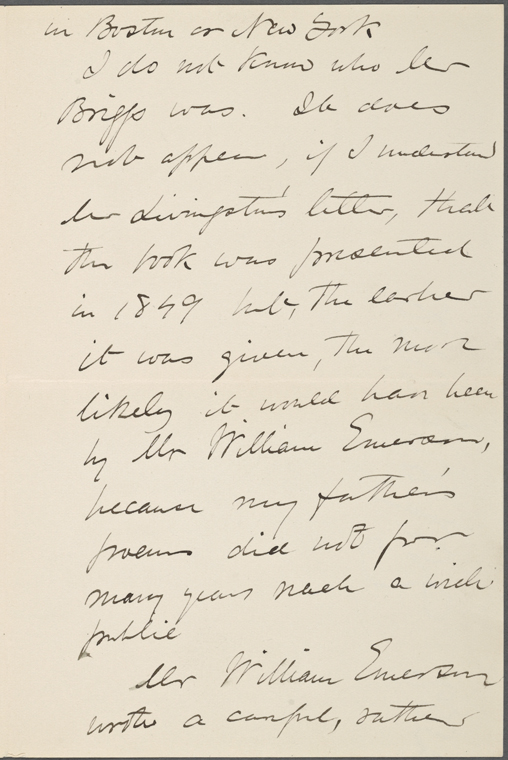 in Boston or New York
I do not know who Mr
Briggs was. It does
not appear, if I understand
Mr Livingston's letter, that
the book was presented
in 1849 but, the earlier
it was given, the more
likely it would have been
by Mr William Emerson,
because my father's
poems did not for
many years reach a wide
public
Mr William Emerson
wrote a careful, rather